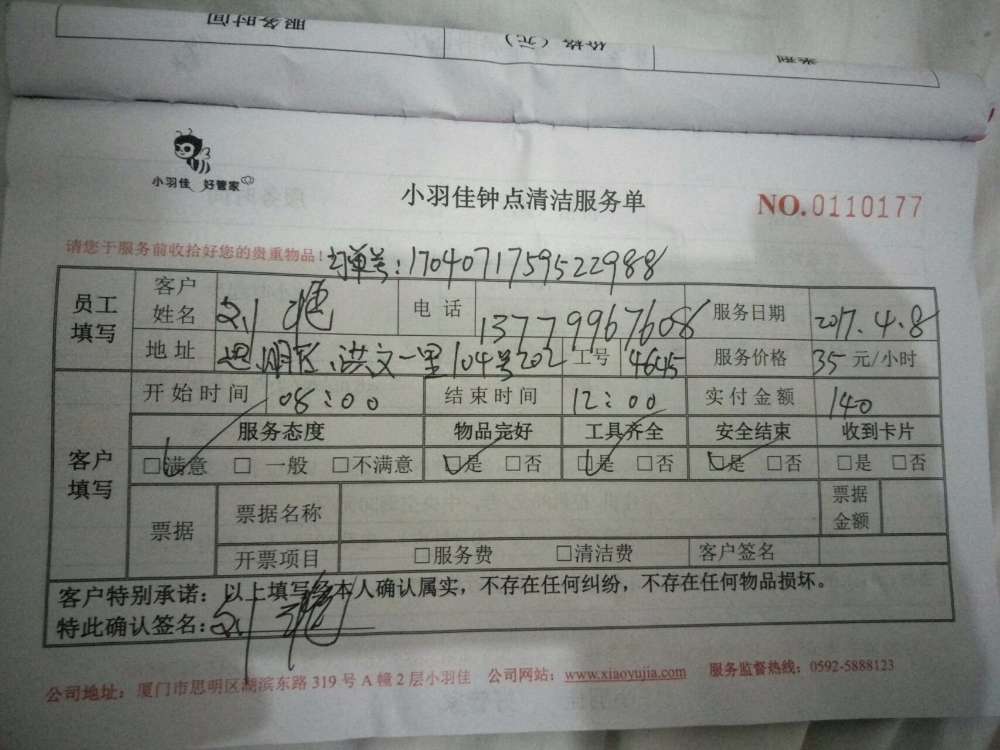 服务时间 价格(元) 类别
小羽佳 好管家
小羽佳钟点清洁服务单 NO.0110177
请您于服务前收拾好您的贵重物品!
订单号:1704071759522988
员工填写 客户姓名 刘 电话 13779967608 服务日期 2017.4.8
地址 思明区洪文一里104号202 工号 4645 服务价格 35元/小时
客户填写 开始时间 08:00 结束时间 12:00 实付金额 140
服务态度 物品完好 工具齐全 安全结束 收到卡片
□满意 □一般 □不满意 □是 □否 □是 □否 □是 □否 □是 □否
票据 票据名称 票据金额
开票项目 □服务费 □清洁费 客户签名
客户特别承诺:以上填写经本人确认属实,不存在任何纠纷,不存在任何物品损坏。
特此确认签名:刘
公司地址:厦门市思明区湖滨东路319号A幢2层小羽佳 公司网站:www.xiaoyujia.com 服务监督热线:0592-5888123